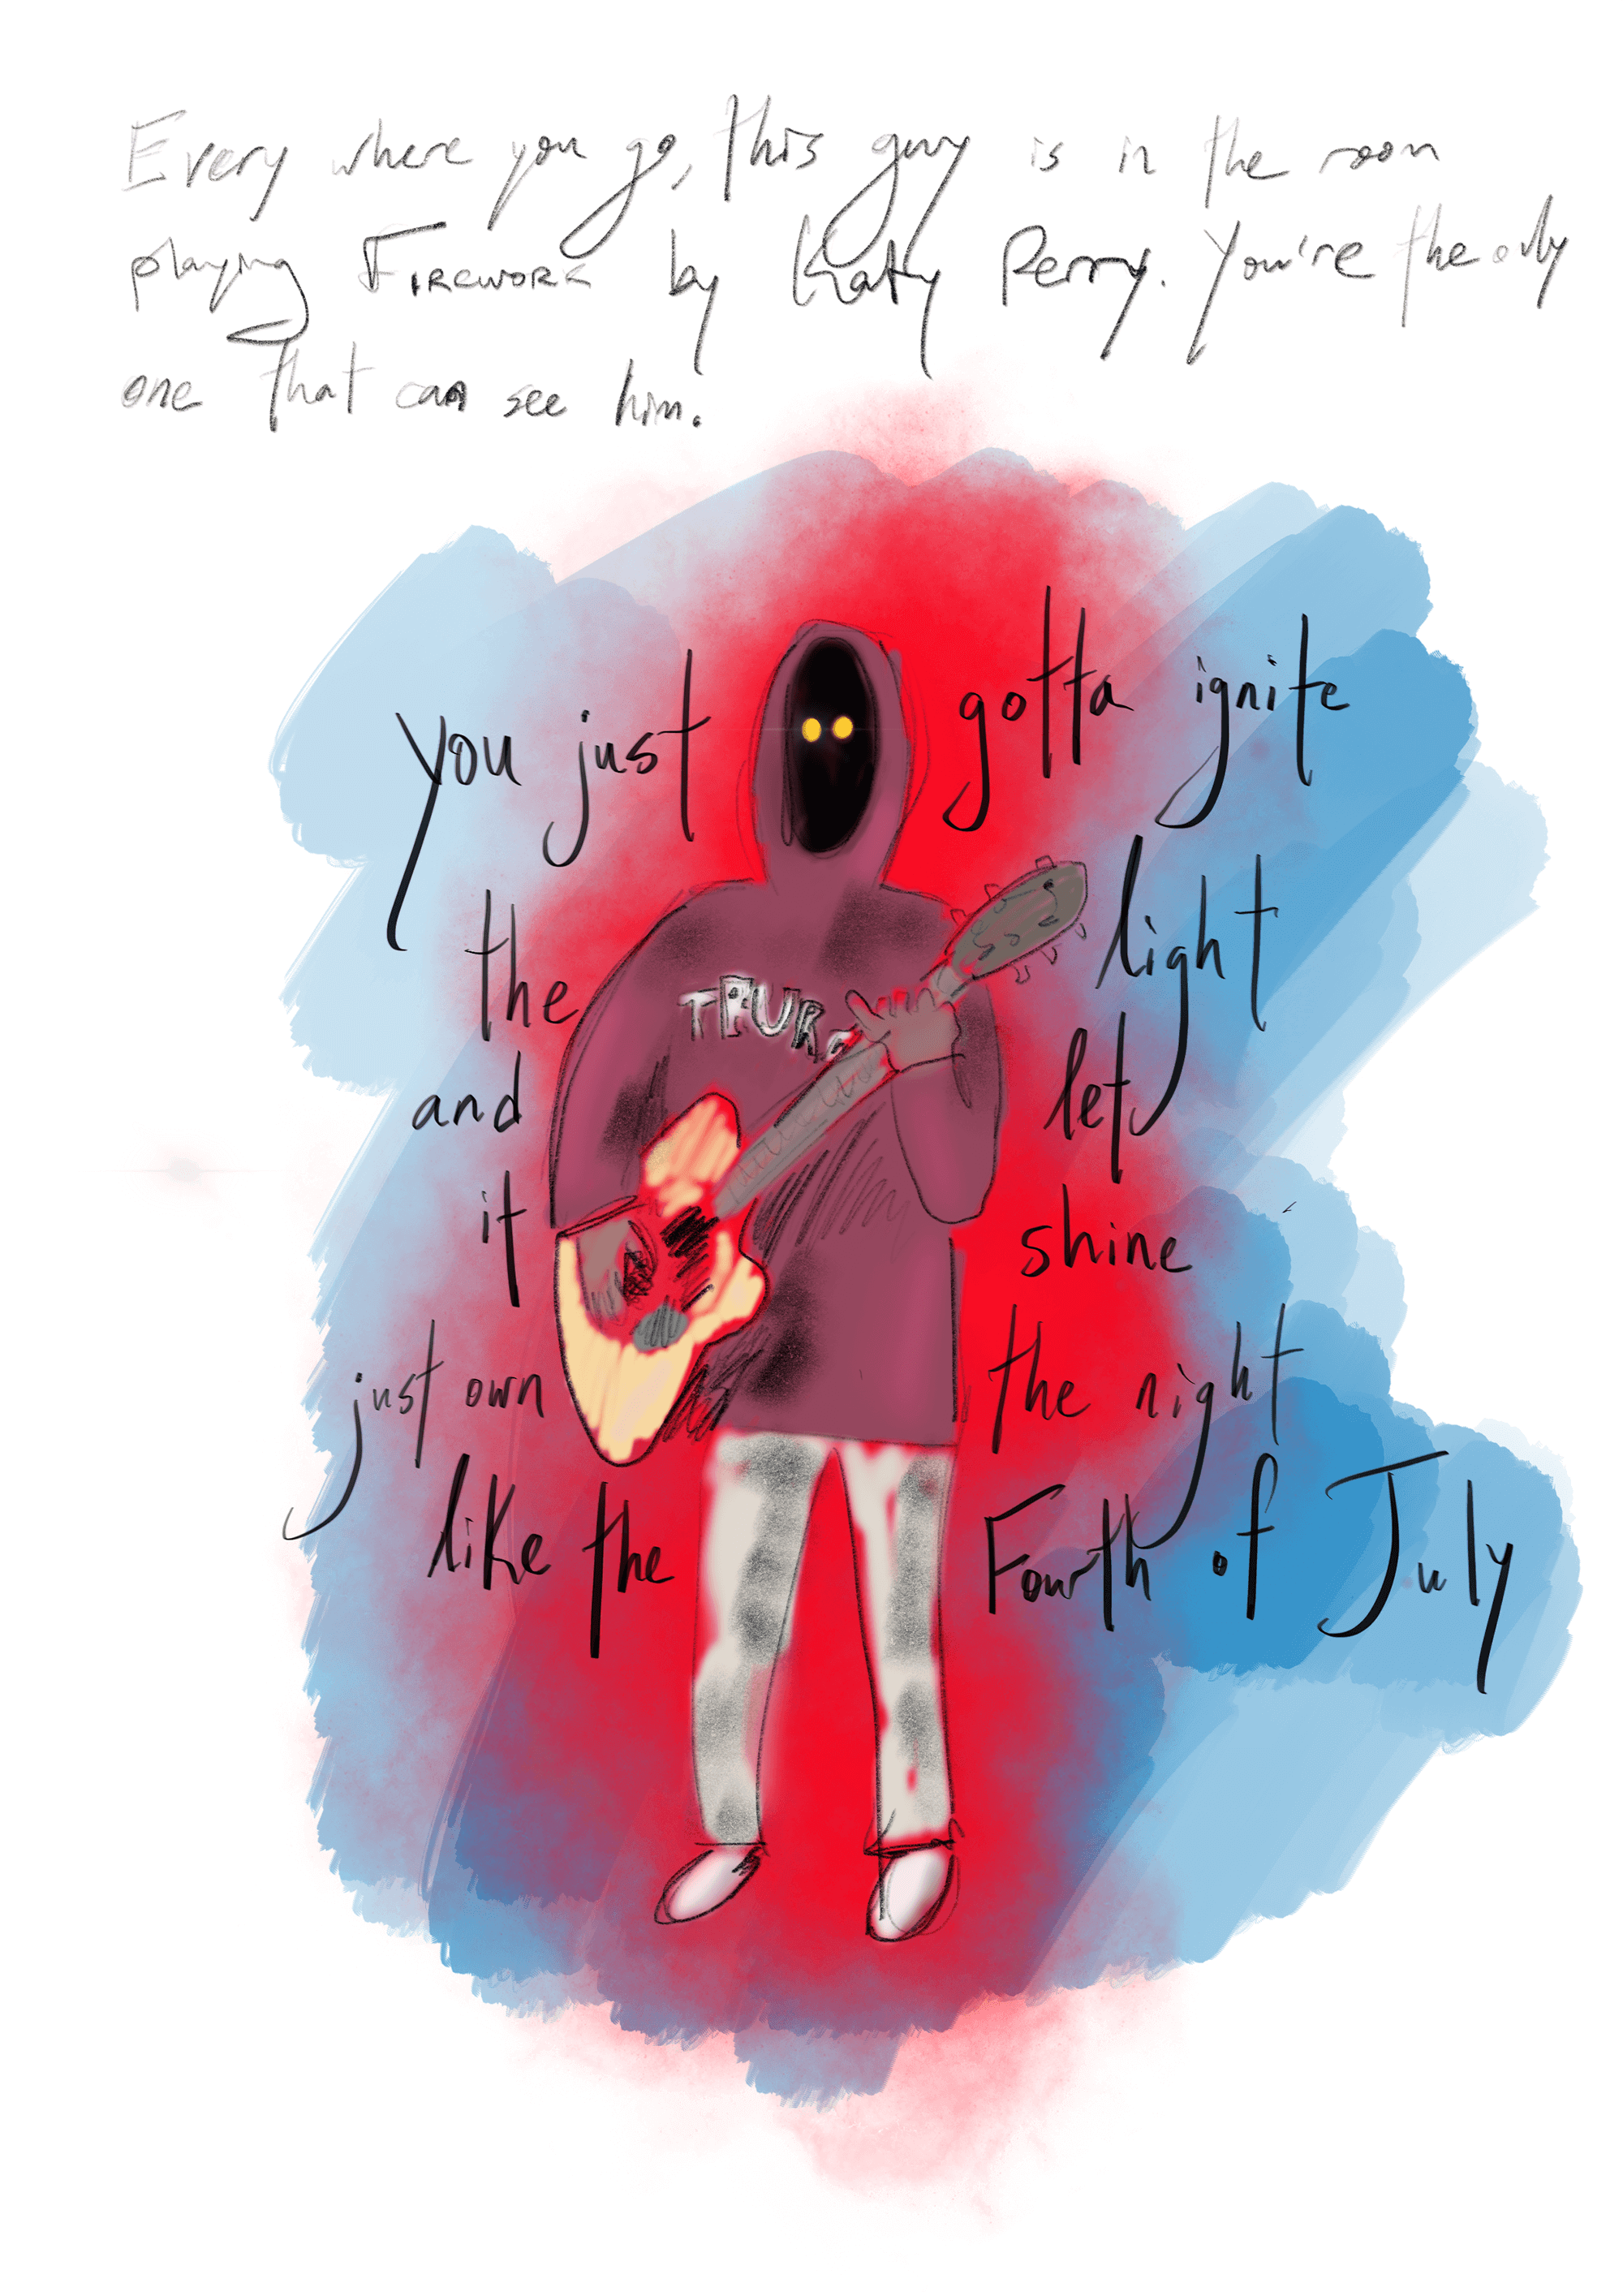 Every where you go, this guy is in the room
playing FIREWORK by Katy Perry. You're the only
one that can see him.
you just gotta ignite
the light
and let
it shine
just own the night
like the Fourth of July